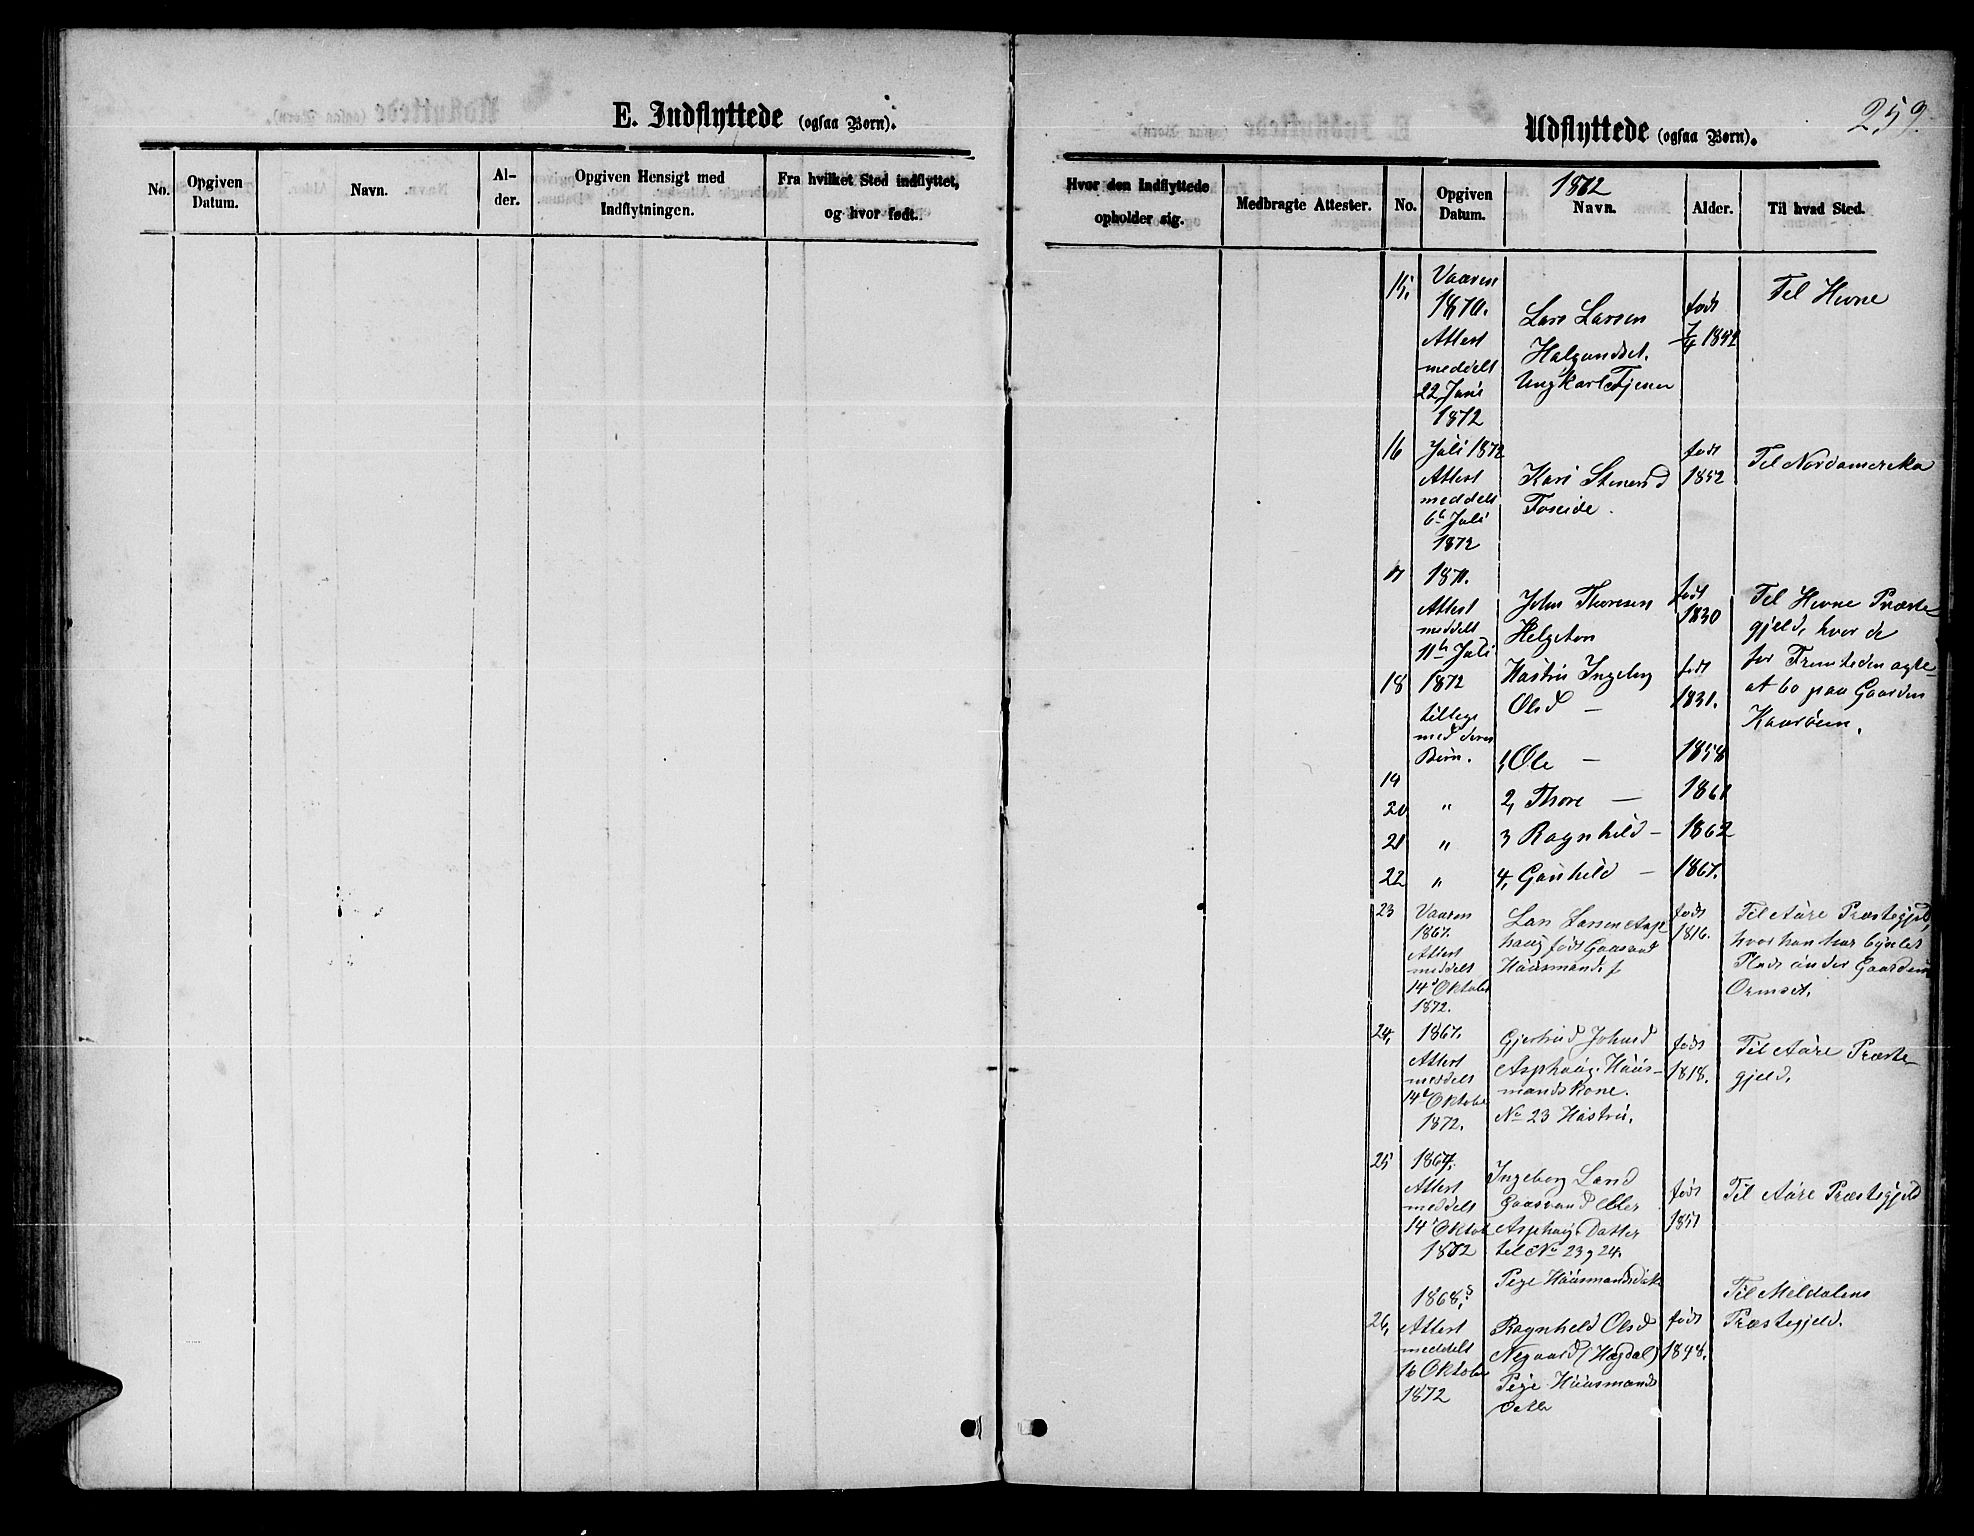 E. Indflyttede (ogsaa Børn).
No.
Opgiven Datum.
Navn.
Al-
der.
Opgiven Hensigt med
Indflytningen.
Fra hvilket Sted indflyttet,
og hvor født.
259.
Udflyttede (ogsaa Børn).
Hvor den Indflyttede
opholder sig.
Medbragte Attester.
No.
Opgiven Datum.
1872
Navn.
Alder.
Til hvad Sted.
15,
Vaaren
1870.
Attest
meddelt
22 Juni
1872
Lars Larsen
Halgundset.
Ungkarl Tjener
født
7/4 1852
Til Hevne
16
Juli 1872
Attest
meddelt
6te Juli
1872
Kari Stenersd
Foseide.
født
1852
Til Nordamerika
17
1871.
Attest
meddelt
11te Juli
1872
John Thoresen
Helgeton
født
1830
Til Hevne Præste-
gjeld, hvor de
for Fremtiden agte
at bo paa Gaarden
18
tillige
med deres
Børn.
Hustru Ingebrg
Olsd —
født
1831.
19
1, Ole —
1858
20
"
2, Thore —
1861
21
"
3 Ragnhild —
1862
22
"
4, Gunhild —
1867.
23
Vaaren
1867.
Attest
meddelt
14de Oktober
1872.
Lars Larsen Asp
haug født Gaasvad
Huusmand
født
1816.
Til Aure Præstegjeld,
hvor han har byxlet
Plads under Gaarden
Ormset.
24,
1867.
Attest
meddelt
14de Oktober
1872.
Gjertrud Johnsd
Asphaug. Huus-
mandskone.
No 23 Hustru.
født
1818.
Til Aure Præste-
gjeld.
25
1867.
Attest
meddelt
14de Oktob
1872
Ingeborg Larsd
Gaasvand eller
Asphaug. Datter
til No 23 & 24.
Pige Huusmandsdatt
født
1851
Til Aure Præstegjeld
26,
1868,
Attest
meddelt
16 Oktober
1872
Ragnhild Olsd
Negaard (Hegdal)
Pige Huusmands
Datter
født
1848.
Til Meldalens
Præstegjeld.